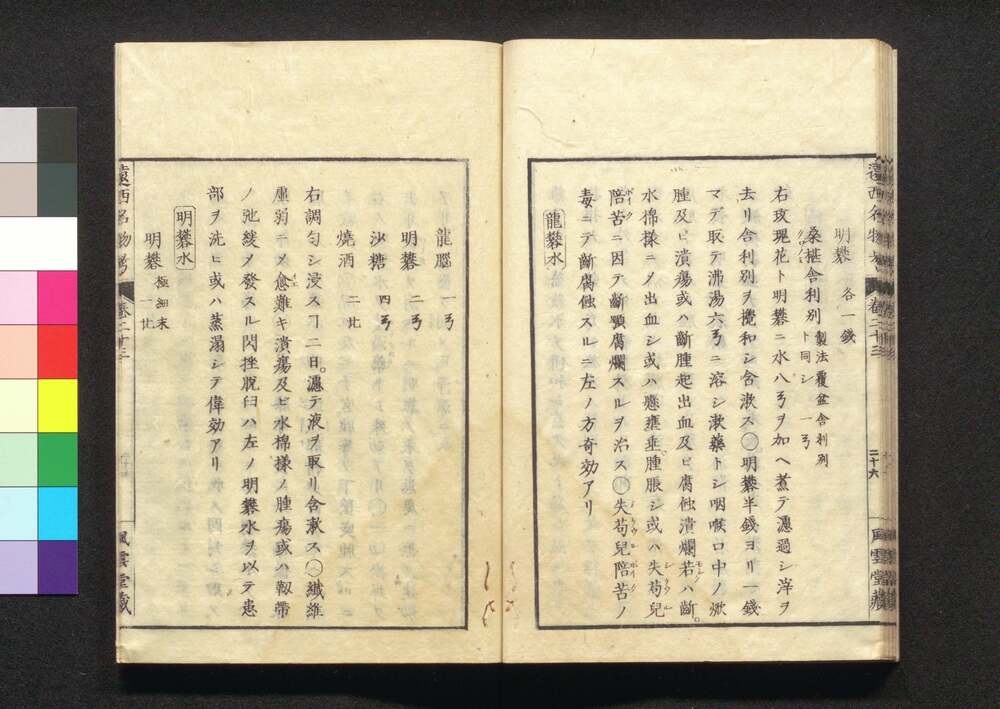 明礬 各一錢
桑椹舎利別 製法覆盆舎利別ト同シ 一ヲ
右玫瑰花ト明礬ニ水八ヲヲ加ヘ煮テ濾過シ滓ヲ
去リ舎利別ヲ攪和シ含漱ス○明礬半錢ヨリ一錢
マデ取テ沸湯六ヲニ溶シ漱藥トシ咽喉口中ノ焮
腫及ヒ潰瘍或ハ齗腫起出血及ヒ腐蝕潰爛若ハ齗
水棉様ニメ出血シ或ハ懸壅垂腫脹シ或ハ失苟兒
陪苦ニ因テ齗顎腐爛スルヲ治ス○失苟兒陪苦ノ
毒ニテ齗腐蝕スルニ左ノ方奇効アリ
龍礬水
二十六
風雲堂藏
龍腦 一ヲ
明礬 二ヲ
沙糖 四ヲ
燒酒 二㐂
右調匀シ浸スヿ二日。濾テ液ヲ取リ含漱ス○纎維
虚弱ニメ愈難キ潰瘍及ヒ水棉様ノ腫瘍或ハ靱帶
ノ弛緩ヲ發スル閃挫脱臼ハ左ノ明礬水ヲ以テ患
部ヲ洗ヒ或ハ蒸溻シテ偉効アリ
明礬水
明礬 極細末 一㐂
遠西名物考 卷二十三
風雲堂藏